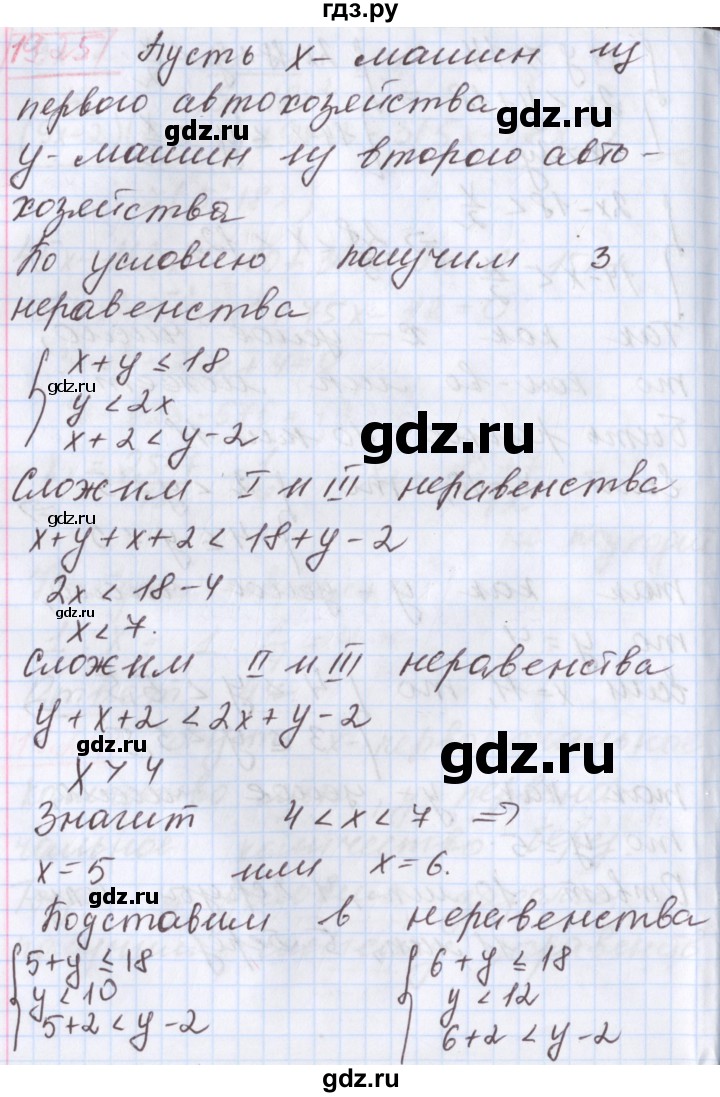 гдз.ру
19.25
Пусть x - машин из
первого автохозяйства
gdz.ru
gdz.ru
y - машин из второго авто-
хозяйства
По условию получим 3
неравенства
x+y ≤ 18
gdz.ru
y < 2x
x+2 < y-2
gdz.ru
Сложим I и III неравенства
x+y+x+2 < 18+y-2
2x < 18-4
gdz.ru
x < 7.
Сложим II и III неравенства
y+x+2 < 2x+y-2
gdz.ru
x > 4
gdz.ru
Значит 4 < x < 7 ⇒
x=5 или x=6.
gdz.ru
Подставим в неравенства
5+y ≤ 18 6+y ≤ 18
y < 10 y < 12
gdz.ru
5+2 < y-2 6+2 < y-2
gdz.ru
gdz.ru